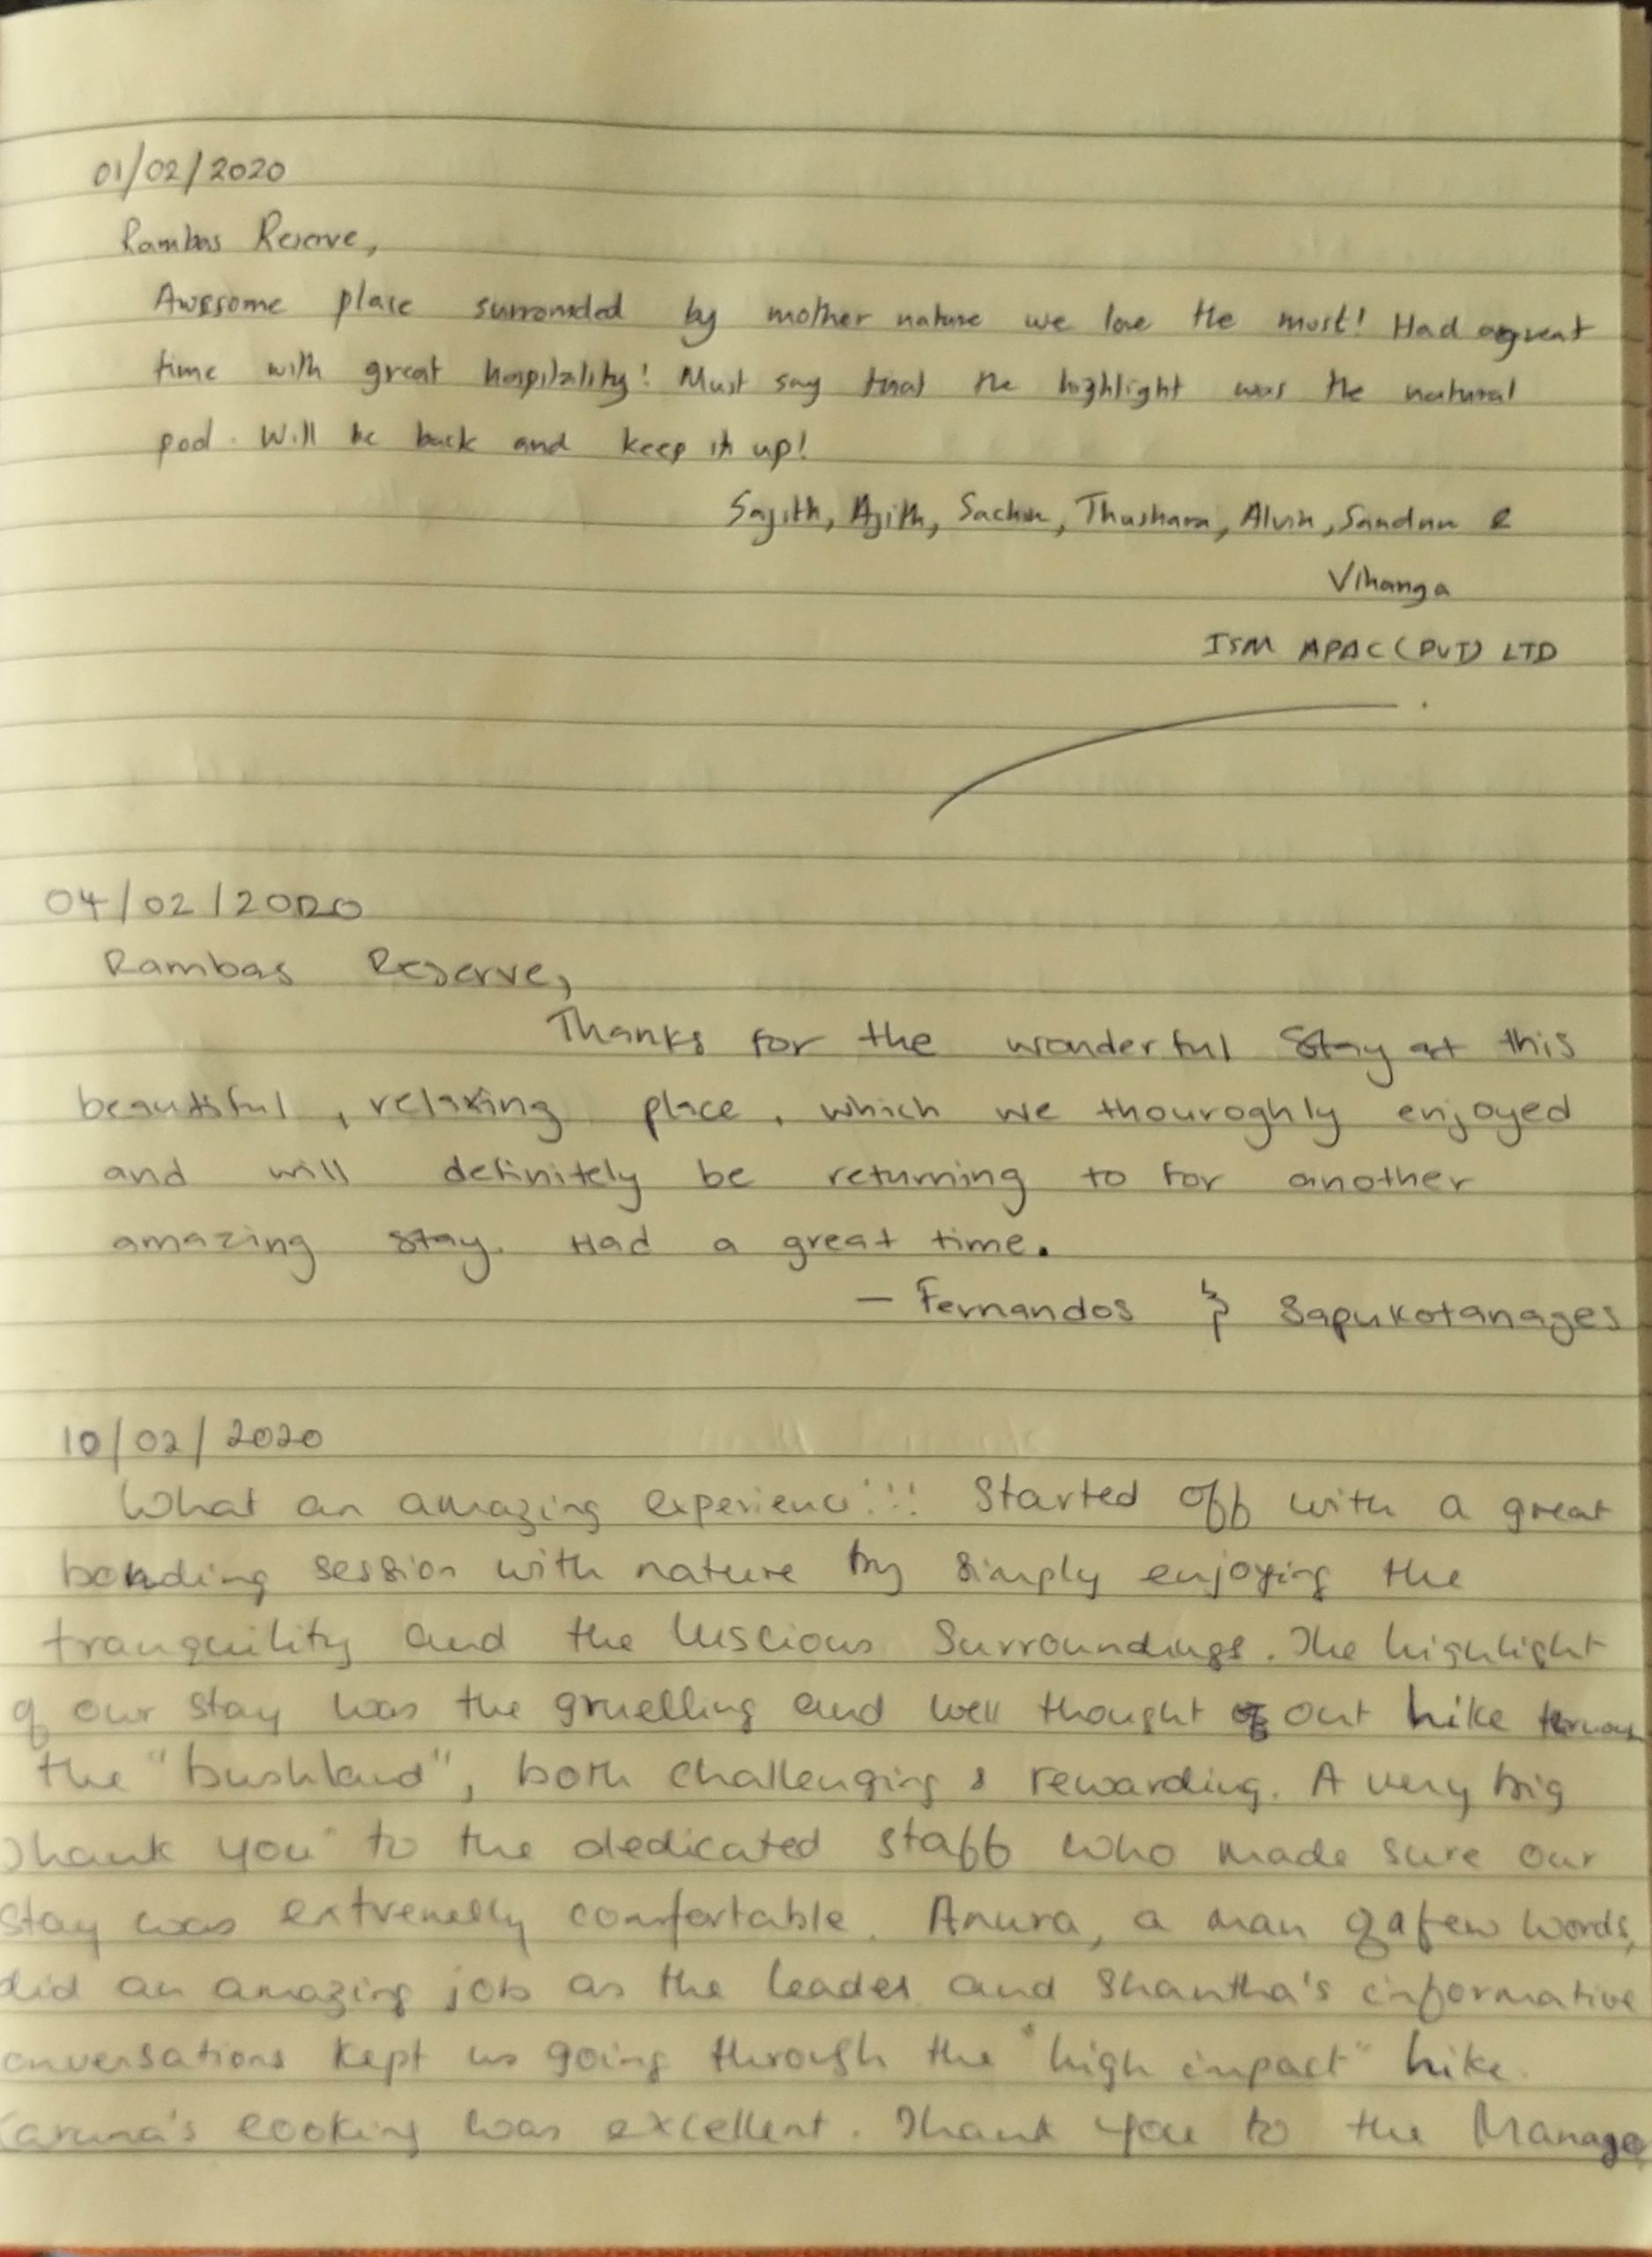 01/02/2020
Rambas Reserve,
Awesome place surronded by mother nature we love the most! Had a great
time with great hospitality! Must say that the highlight was the natural
pool. Will be back and keep it up!
Sajith, Ajith, Sachin, Thushara, Alvin, Sandun &
Vihanga
ISM APAC (PVT) LTD
04/02/2020
Rambas Reserve,
Thanks for the wonderful stay at this
beautiful, relaxing place, which we thouroghly enjoyed
and will definitely be returning to for another
amazing stay. Had a great time.
— Fernandos & Sapukotanages
10/02/2020
What an amazing experience!!! Started off with a great
bonding session with nature by simply enjoying the
tranquility and the luscious surroundings. The highlight
of our stay was the gruelling and well thought out hike
the "bushland", both challenging & rewarding. A very big
Thank you" to the dedicated staff who made sure our
stay was extremelly comfortable. Anura, a man of a few words,
did an amazing job as the leader and Shantha's informative
onversations kept us going through the "high impact" hike.
aruna's cooking was excellent. Thank you to the Manage